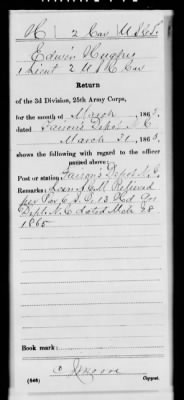 H | 2 Cav | U.S.C.T.
Edwin Hughes
1 Lieut 2 U S C Cav
Return
of the 3d Division, 25th Army Corps,
for the month of March, 1865,
dated Faison's Depot N C
March 31, 1865,
shows the following with regard to the officer
named above:
Post or station: Faison's Depot N. C
Remarks: Relieved
per Par 6 S. O. 13
Dept N. C dated Mch 28
1865
Book mark:
Moore
(546) Copyist.